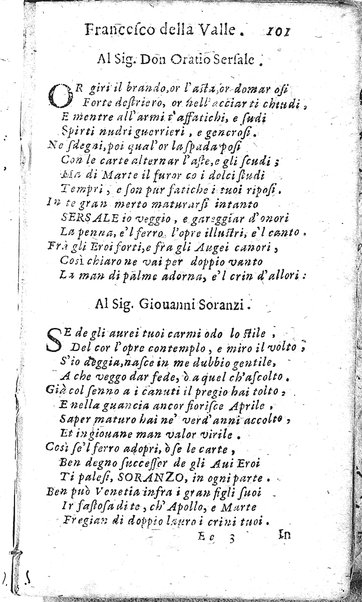 Francesco della Valle. 101
Al Sig. Don Oratio Sersale.
OR giri il brando, or l'asta, or domar osi
Forte destriero, or nell'acciar ti chiudi,
E mentre all'armi t'affatichi, e sudi
Spirti nudri guerrieri, e generosi.
Ne sdegni, poi qual'or la spada posi
Con le carte alternar l'aste, e gli scudi;
Ma di Marte il furor co i dolci studi
Tempri, e son pur fatiche i tuoi riposi.
In te gran merto maturarsi intanto
SERSALE io veggio, e gareggiar d'onori
La penna, e'l ferro, l'opre illustri, e'l canto.
Frà gli Eroi forti, e fra gli Augei canori,
Così chiaro ne vai per doppio vanto
La man di palme adorna, e'l crin d'allori:
Al Sig. Giouanni Soranzi.
SE de gli aurei tuoi carmi odo lo stile,
Del cor l'opre contemplo, e miro il volto,
S'io deggia, nasce in me dubbio gentile,
A che veggo dar fede, ò a quel ch'ascolto.
Già col senno a i canuti il pregio hai tolto,
E nella guancia ancor fiorisce Aprile,
Saper maturo hai ne' verd'anni accolto,
Et in giouane man valor virile.
Così se'l ferro adopri, ò se le carte,
Ben degno successor de gli Aui Eroi
Ti palesi, SORANZO, in ogni parte.
Ben può Venetia infra i gran figli suoi
Ir fastosa di te, ch'Apollo, e Marte
Fregian di doppio lauro i crini tuoi.
Ee 3 In